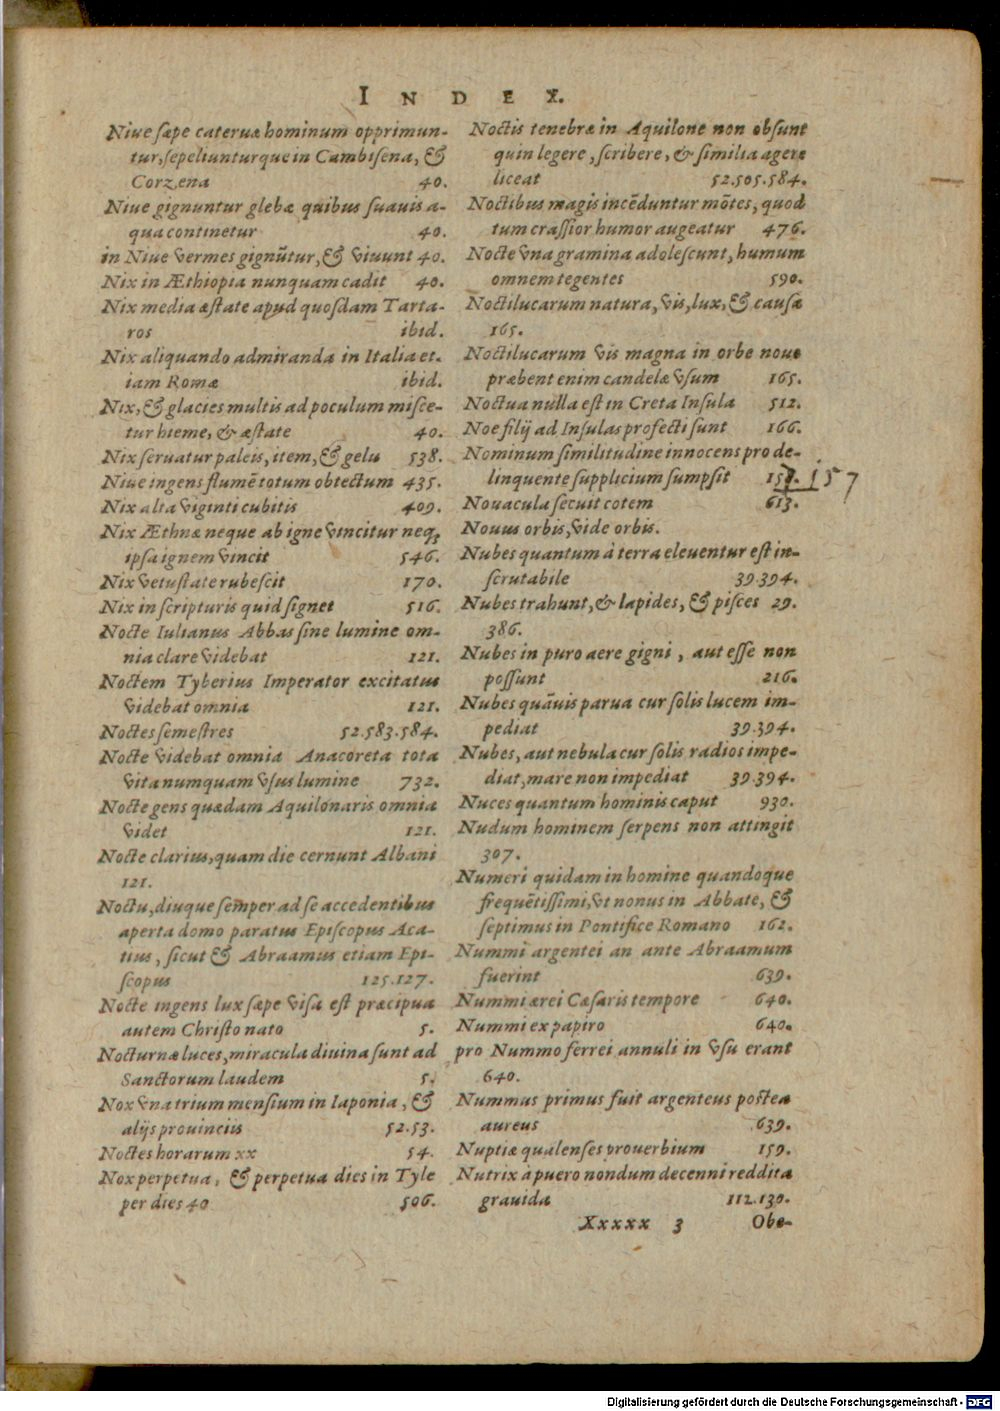 INDEX.
Niue sæpe cateruæ hominum opprimun-
tur, sepeliunturque in Cambisena, &
Corzena 40.
Niue gignuntur glebæ quibus suauis a-
qua continetur 40.
in Niue vermes gignũtur, & viuunt 40.
Nix in Æthiopia nunquam cadit 40.
Nix media æstate apud quosdam Tarta-
ros ibid.
Nix aliquando admiranda in Italia et-
iam Romæ ibid.
Nix, & glacies multis ad poculum misce-
tur hieme, & æstate 40.
Nix seruatur paleis, item, & gelu 538.
Niue ingens flumẽ totum obtectum 435.
Nix alta viginti cubitis 409.
Nix Æthnæ neque ab igne vincitur neq;
ipsa ignem vincit 546.
Nix vetustate rubescit 170.
Nix in scripturis quid signet 516.
Nocte Iulianus Abbas sine lumine om-
nia clare videbat 121.
Noctem Tyberius Imperator excitatus
videbat omnia 121.
Noctes semestres 52.583.584.
Nocte videbat omnia Anacoreta tota
vita numquam vsus lumine 732.
Nocte gens quædam Aquilonaris omnia
videt 121.
Nocte clarius, quam die cernunt Albani
121.
Noctu, diuque semper ad se accedentibus
aperta domo paratus Episcopus Aca-
tius, sicut & Abraamus etiam Epi-
scopus 125.127.
Nocte ingens lux sæpe visa est præcipua
autem Christo nato 5.
Nocturnæ luces, miracula diuina sunt ad
Sanctorum laudem 5.
Nox vna trium mensium in laponia, &
alijs prouinciis 52.53.
Noctes horarum xx 54.
Nox perpetua, & perpetua dies in Tyle
per dies 40 506.
Noctis tenebræ in Aquilone non obsunt
quin legere, scribere, & similia agere
liceat 52.505.584.
Noctibus magis incẽduntur mõtes, quod
tum crassior humor augeatur 476.
Nocte vna gramina adolescunt, humum
omnem tegentes 590.
Noctilucarum natura, vis, lux, & causæ
165.
Noctilucarum vis magna in orbe nouo
præbent enim candelæ vsum 165.
Noctua nulla est in Creta Insula 512.
Noe filij ad Insulas profecti sunt 166.
Nominum similitudine innocens pro de-
linquente supplicium sumpsit 157
Nouacula secuit cotem 613.
Nouus orbis, vide orbis.
Nubes quantum à terra eleuentur est in-
scrutabile 39.394.
Nubes trahunt, & lapides, & pisces 29.
386.
Nubes in puro aere gigni, aut esse non
possunt 216.
Nubes quãuis parua cur solis lucem im-
pediat 39.394.
Nubes, aut nebula cur solis radios impe-
diat, mare non impediat 39.394.
Nuces quantum hominis caput 930.
Nudum hominem serpens non attingit
307.
Numeri quidam in homine quandoque
frequẽtissimi, vt nonus in Abbate, &
septimus in Pontifice Romano 162.
Nummi argentei an ante Abraamum
fuerint 639.
Nummi ærei Cæsaris tempore 640.
Nummi ex papiro 640.
pro Nummo ferrei annuli in vsu erant
640.
Nummus primus fuit argenteus postea
aureus 639.
Nuptiæ qualenses prouerbium 159.
Nutrix à puero nondum decenni reddita
grauida 112.130.
Xxxxx 3 Obe-
Digitalisierung gefördert durch die Deutsche Forschungsgemeinschaft - DFG